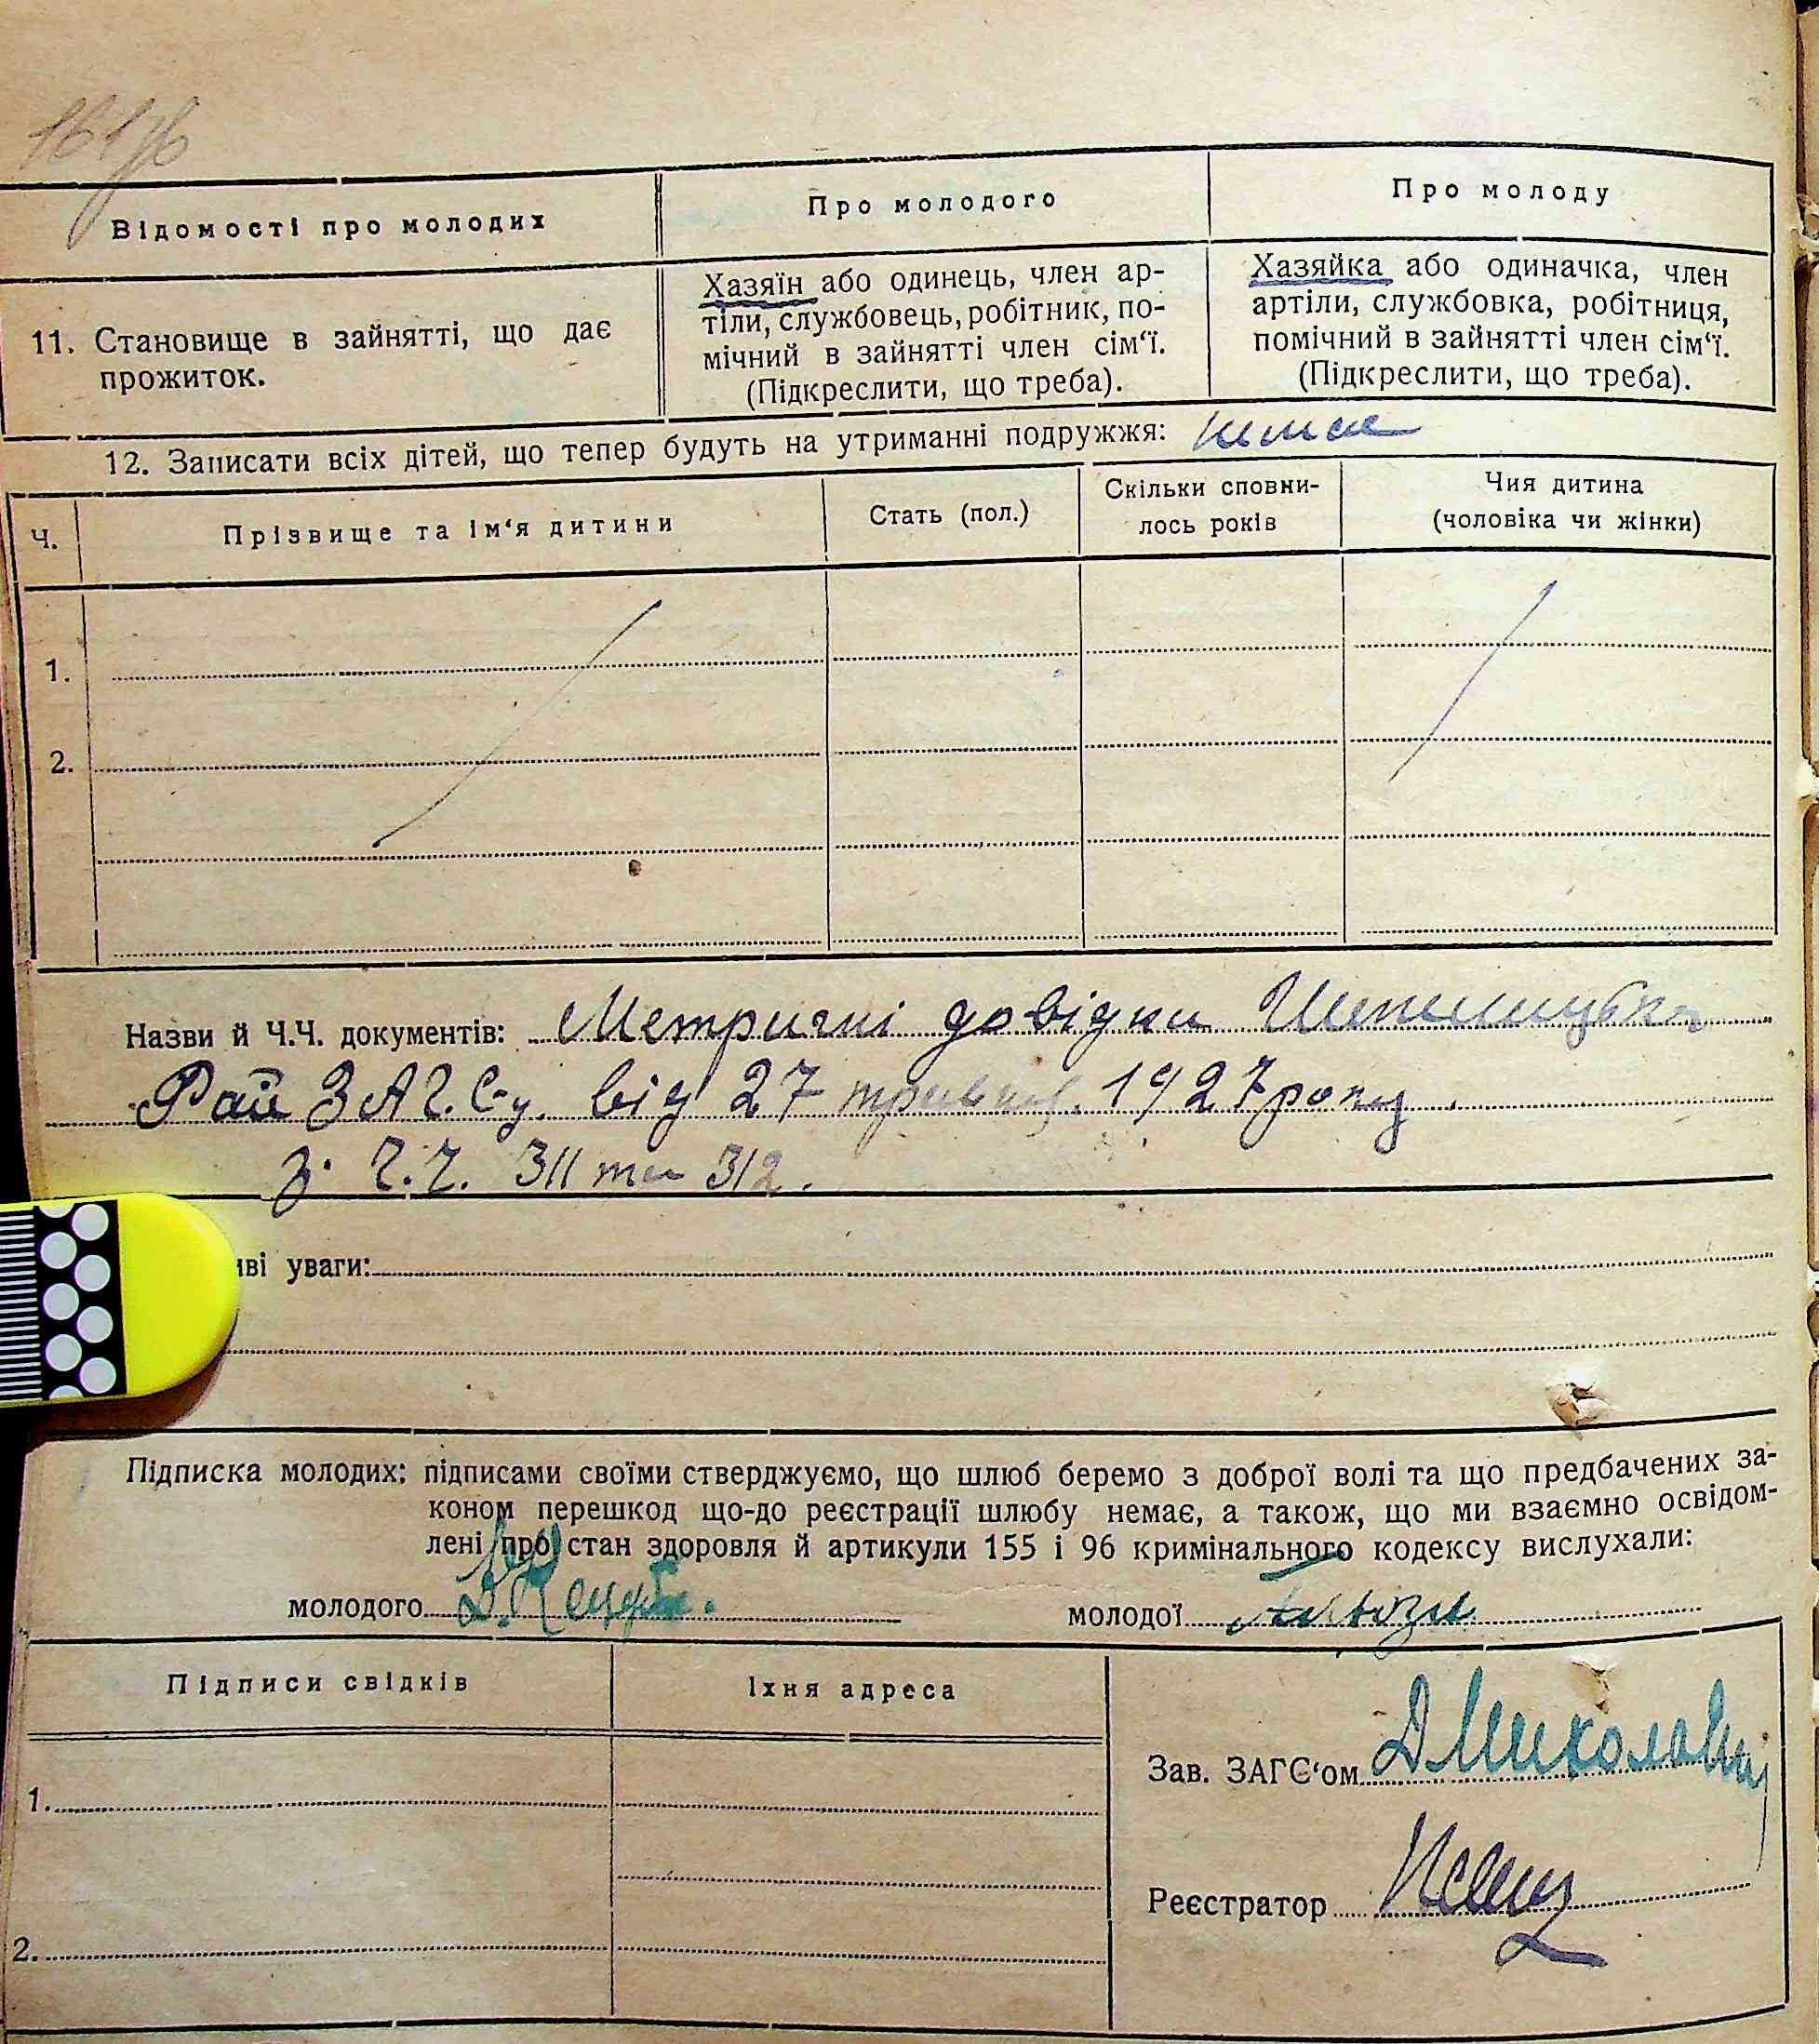 Відомості про молодих
Про молодого
Про молоду
11. Становище в зайнятті, що дає
прожиток.
Хазяїн або одинець, член ар-
тіли, службовець, робітник, по-
мічний в зайнятті член сім‘ї.
(Підкреслити, що треба).
Хазяйка або одиначка, член
артіли, службовка, робітниця,
помічний в зайнятті член сім‘ї.
(Підкреслити, що треба).
12. Записати всіх дітей, що тепер будуть на утриманні подружжя: немае
Ч.
Прізвище та ім‘я дитини
Стать (пол.)
Скільки сповни-
лось років
Чия дитина
(чоловіка чи жінки)
1.
2.
Назви й Ч.Ч. документів: Метричні довідки
Рай ЗАГС-у. від 27 травня 1927 року
з. Ч.Ч. 311 та 312.
иві уваги:
Підписка молодих: підписами своїми стверджуємо, що шлюб беремо з доброї волі та що предбачених за-
коном перешкод що-до реєстрації шлюбу немає, а також, що ми взаємно освідом-
лені про стан здоровля й артикули 155 і 96 кримінального кодексу вислухали:
молодого
молодої
Підписи свідків
Їхня адреса
1.
2.
Зав. ЗАГС‘ом
Реєстратор